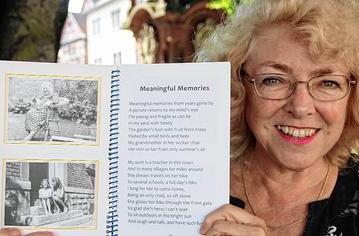 Meaningful Memories
Meaningful memories from years gone by
A picture returns to my mind's eye
I'm young and fragile as can be
In my yard with family
The garden's lush with fruit from trees
Visited by small birds and bees
My grandmother in her wicker chair
Her skin so tan from only summer's air
My aunt is a teacher in this town
And in many villages for miles around
She always travels on her bike
To several schools, a full day's hike
I long for her to come home,
Being an only child, so oft alone
She glides her bike through the front gate
So glad she's here; I can't wait
To sit outdoors in the bright sun
And laugh and talk, and have such fun